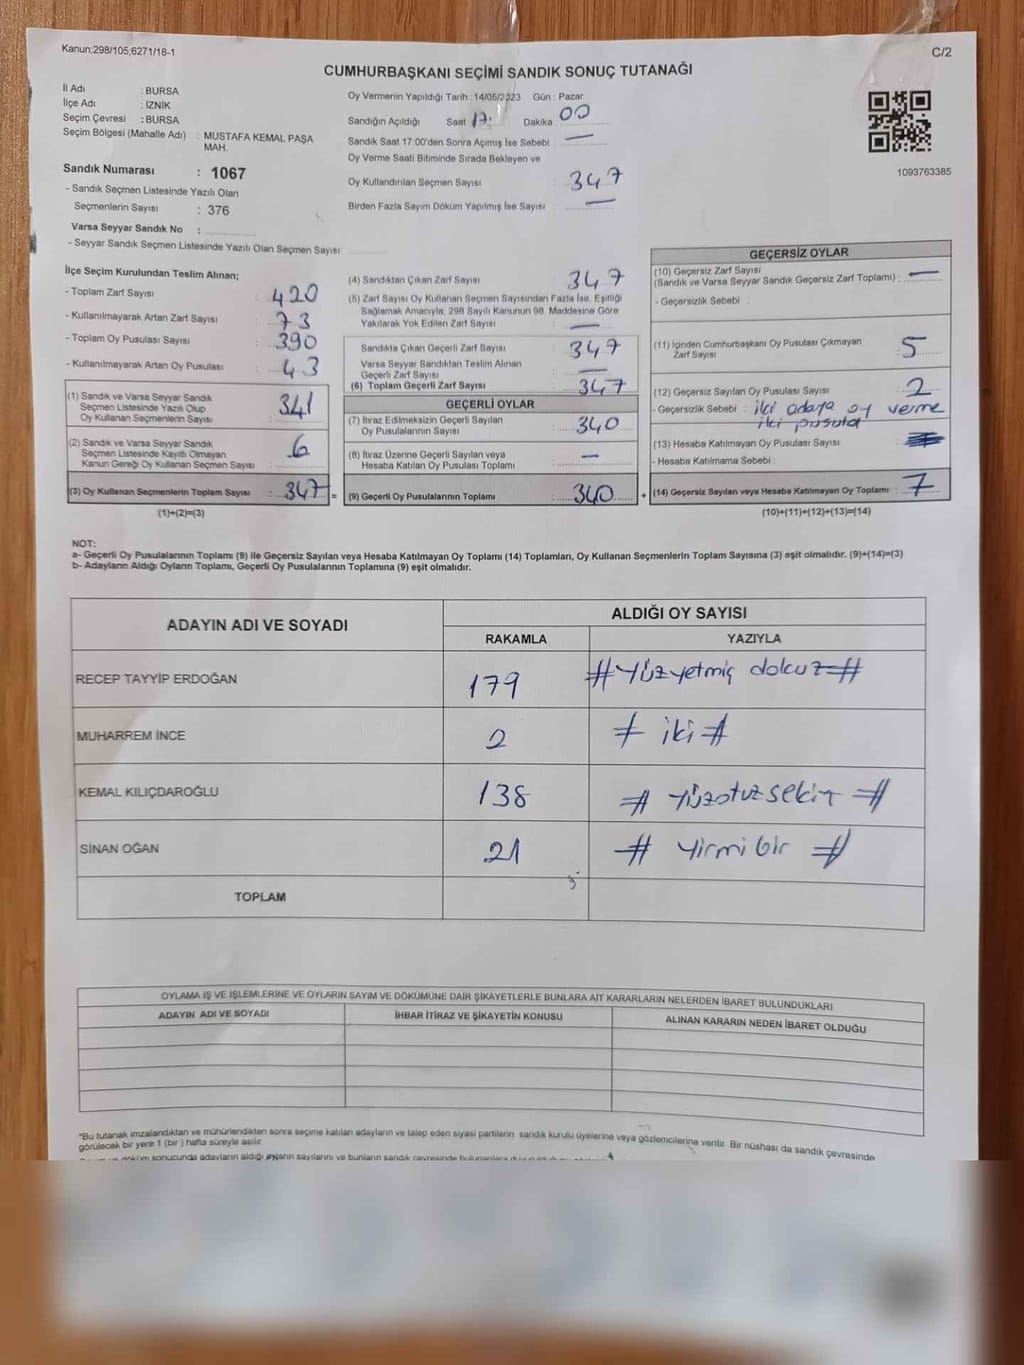 Kanun:298/105;6271/16-1
C/2
CUMHURBAŞKANI SEÇİMİ SANDIK SONUÇ TUTANAĞI
İl Adı : BURSA
İlçe Adı : İZNİK
Seçim Çevresi : BURSA
Seçim Bölgesi (Mahalle Adı) : MUSTAFA KEMAL PAŞA MAH.
Sandık Numarası : 1067
- Sandık Seçmen Listesinde Yazılı Olan
Seçmenlerin Sayısı : 376
Varsa Seyyar Sandık No :
- Seyyar Sandık Seçmen Listesinde Yazılı Olan Seçmen Sayısı
Oy Vermenin Yapıldığı Tarih : 14/05/2023 Gün : Pazar
Sandığın Açıldığı Saat 17: Dakika : 00
Sandık Saat 17:00'den Sonra Açılmış İse Sebebi : —
Oy Verme Saati Bitiminde Sırada Bekleyen ve
Oy Kullandırılan Seçmen Sayısı : 347
Birden Fazla Sayım Döküm Yapılmış İse Sayısı : —
1093763385
İlçe Seçim Kurulundan Teslim Alınan;
- Toplam Zarf Sayısı : 420
- Kullanılmayarak Artan Zarf Sayısı : 73
- Toplam Oy Pusulası Sayısı : 390
- Kullanılmayarak Artan Oy Pusulası : 43
(1) Sandık ve Varsa Seyyar Sandık
Seçmen Listesinde Yazılı Olup
Oy Kullanan Seçmenlerin Sayısı : 341
(2) Sandık ve Varsa Seyyar Sandık
Seçmen Listesinde Kayıtlı Olmayan
Kanun Gereği Oy Kullanan Seçmen Sayısı : 6
(3) Oy Kullanan Seçmenlerin Toplam Sayısı : 347 =
(1)+(2)=(3)
(4) Sandıktan Çıkan Zarf Sayısı : 347
(5) Zarf Sayısı Oy Kullanan Seçmen Sayısından Fazla İse, Eşitliği
Sağlamak Amacıyla; 298 Sayılı Kanunun 98. Maddesine Göre
Yakılarak Yok Edilen Zarf Sayısı : —
Sandıkta Çıkan Geçerli Zarf Sayısı : 347
Varsa Seyyar Sandıktan Teslim Alınan
Geçerli Zarf Sayısı : —
(6) Toplam Geçerli Zarf Sayısı : 347
GEÇERLİ OYLAR
(7) İtiraz Edilmeksizin Geçerli Sayılan
Oy Pusulalarının Sayısı : 340
(8) İtiraz Üzerine Geçerli Sayılan veya
Hesaba Katılan Oy Pusulası Toplamı : —
(9) Geçerli Oy Pusulalarının Toplamı : 340 +
GEÇERSİZ OYLAR
(10) Geçersiz Zarf Sayısı
(Sandık ve Varsa Seyyar Sandık Geçersiz Zarf Toplamı) : —
- Geçersizlik Sebebi :
(11) İçinden Cumhurbaşkanı Oy Pusulası Çıkmayan
Zarf Sayısı : 5
(12) Geçersiz Sayılan Oy Pusulası Sayısı : 2
- Geçersizlik Sebebi : iki adaya oy verme
iki pusula
(13) Hesaba Katılmayan Oy Pusulası Sayısı :
- Hesaba Katılmama Sebebi :
(14) Geçersiz Sayılan veya Hesaba Katılmayan Oy Toplamı : 7
(10)+(11)+(12)+(13)=(14)
NOT:
a- Geçerli Oy Pusulalarının Toplamı (9) ile Geçersiz Sayılan veya Hesaba Katılmayan Oy Toplamı (14) Toplamları, Oy Kullanan Seçmenlerin Toplam Sayısına (3) eşit olmalıdır. (9)+(14)=(3)
b- Adayların Aldığı Oyların Toplamı, Geçerli Oy Pusulalarının Toplamına (9) eşit olmalıdır.
ADAYIN ADI VE SOYADI
ALDIĞI OY SAYISI
RAKAMLA YAZIYLA
RECEP TAYYİP ERDOĞAN 179 #Yüzyetmiş dokuz#
MUHARREM İNCE 2 # iki #
KEMAL KILIÇDAROĞLU 138 # Yüzotuzsekiz #
SİNAN OĞAN 21 # Yirmi bir #
TOPLAM
OYLAMA İŞ VE İŞLEMLERİNE VE OYLARIN SAYIM VE DÖKÜMÜNE DAİR ŞİKAYETLERLE BUNLARA AİT KARARLARIN NELERDEN İBARET BULUNDUKLARI
ADAYIN ADI VE SOYADI İHBAR İTİRAZ VE ŞİKAYETİN KONUSU ALINAN KARARIN NEDEN İBARET OLDUĞU
*Bu tutanak imzalandıktan ve mühürlendikten sonra seçime katılan adayların ve talep eden siyasi partilerin sandık kurulu üyelerine veya gözlemcilerine verilir. Bir nüshası da sandık çevresinde
görülecek bir yere 1 (bir ) hafta süreyle asılır.
döküm sonucunda adayların aldığı oyların sayılarını ve bunların sandık çevresinde bulunanlara